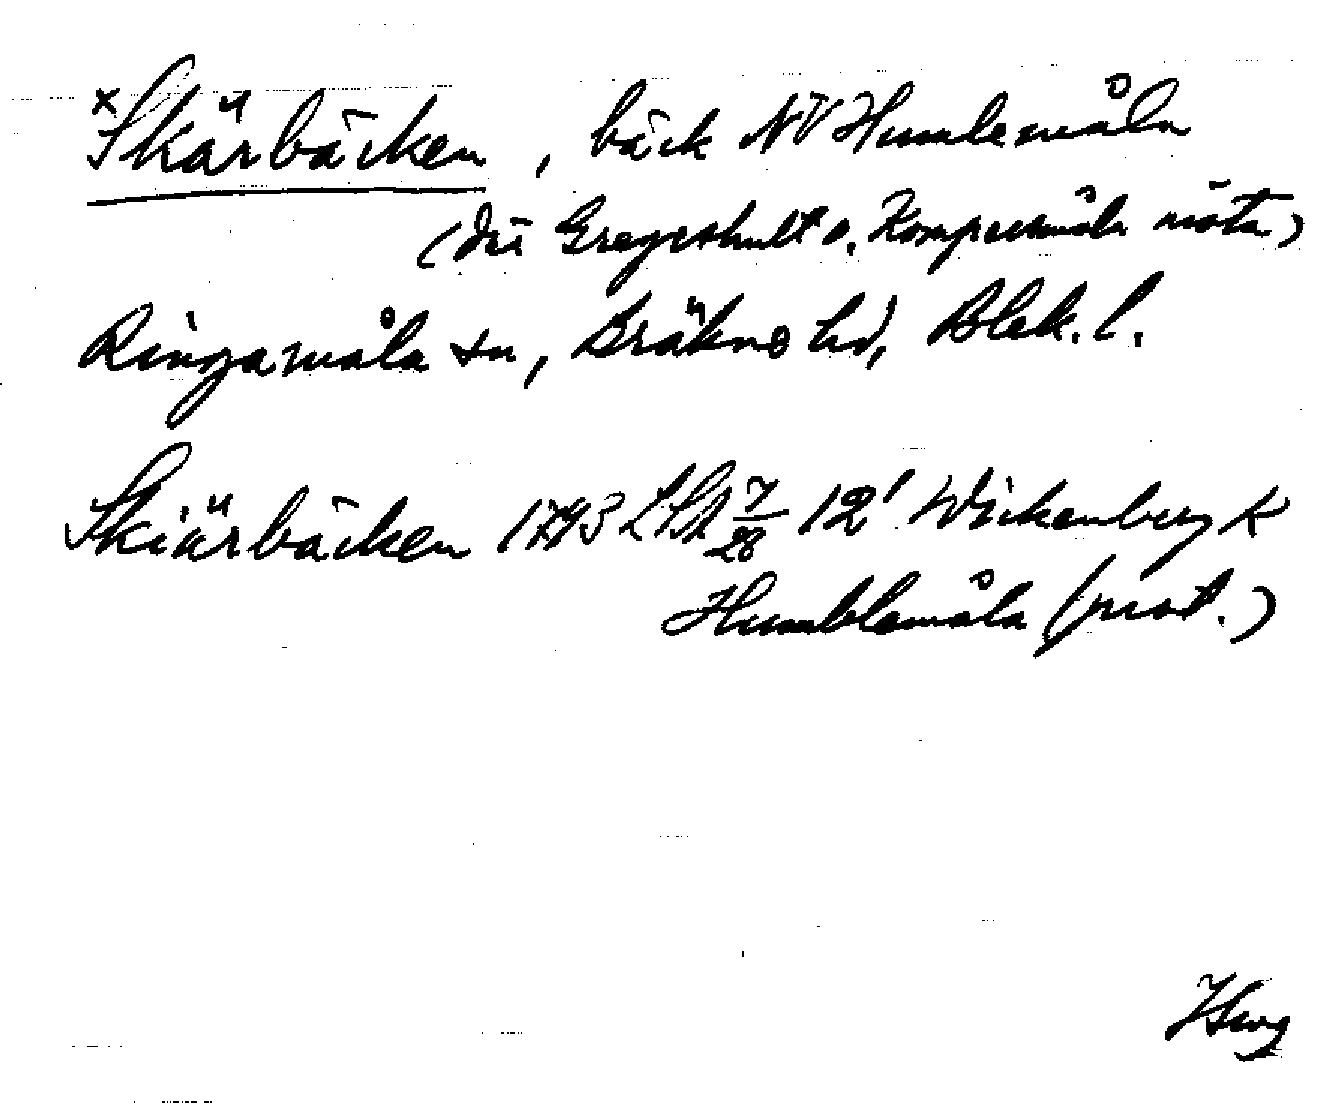 ×Skärbäcken, bäck NV Humlemåla
(där Gregershult o. Kompersmåla möta)
Ringamåla sn, Bräkne hd, Blek. l.
Skiärbäcken 1793 LSA 7/28 12' Wickenberg K
Humblemåla (prot.)